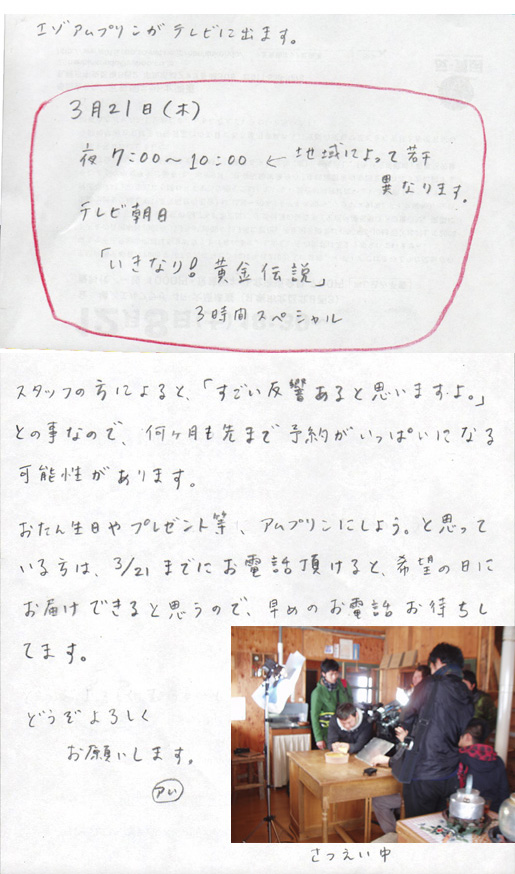 エゾアムプリンがテレビに出ます。
3月21日(木)
夜 7:00～10:00 ← 地域によって若干
異なります。
テレビ朝日
「いきなり! 黄金伝説」
3時間スペシャル
スタッフの方によると、「すごい反響あると思いますよ。」
との事なので、何ヶ月も先まで予約がいっぱいになる
可能性があります。
おたん生日やプレゼント等、アムプリンにしよう。と思って
いる方は、3/21までにお電話頂けると、希望の日に
お届けできると思うので、早めのお電話お待ちし
てます。
どうぞよろしく
お願いします。
アい
さつえい中